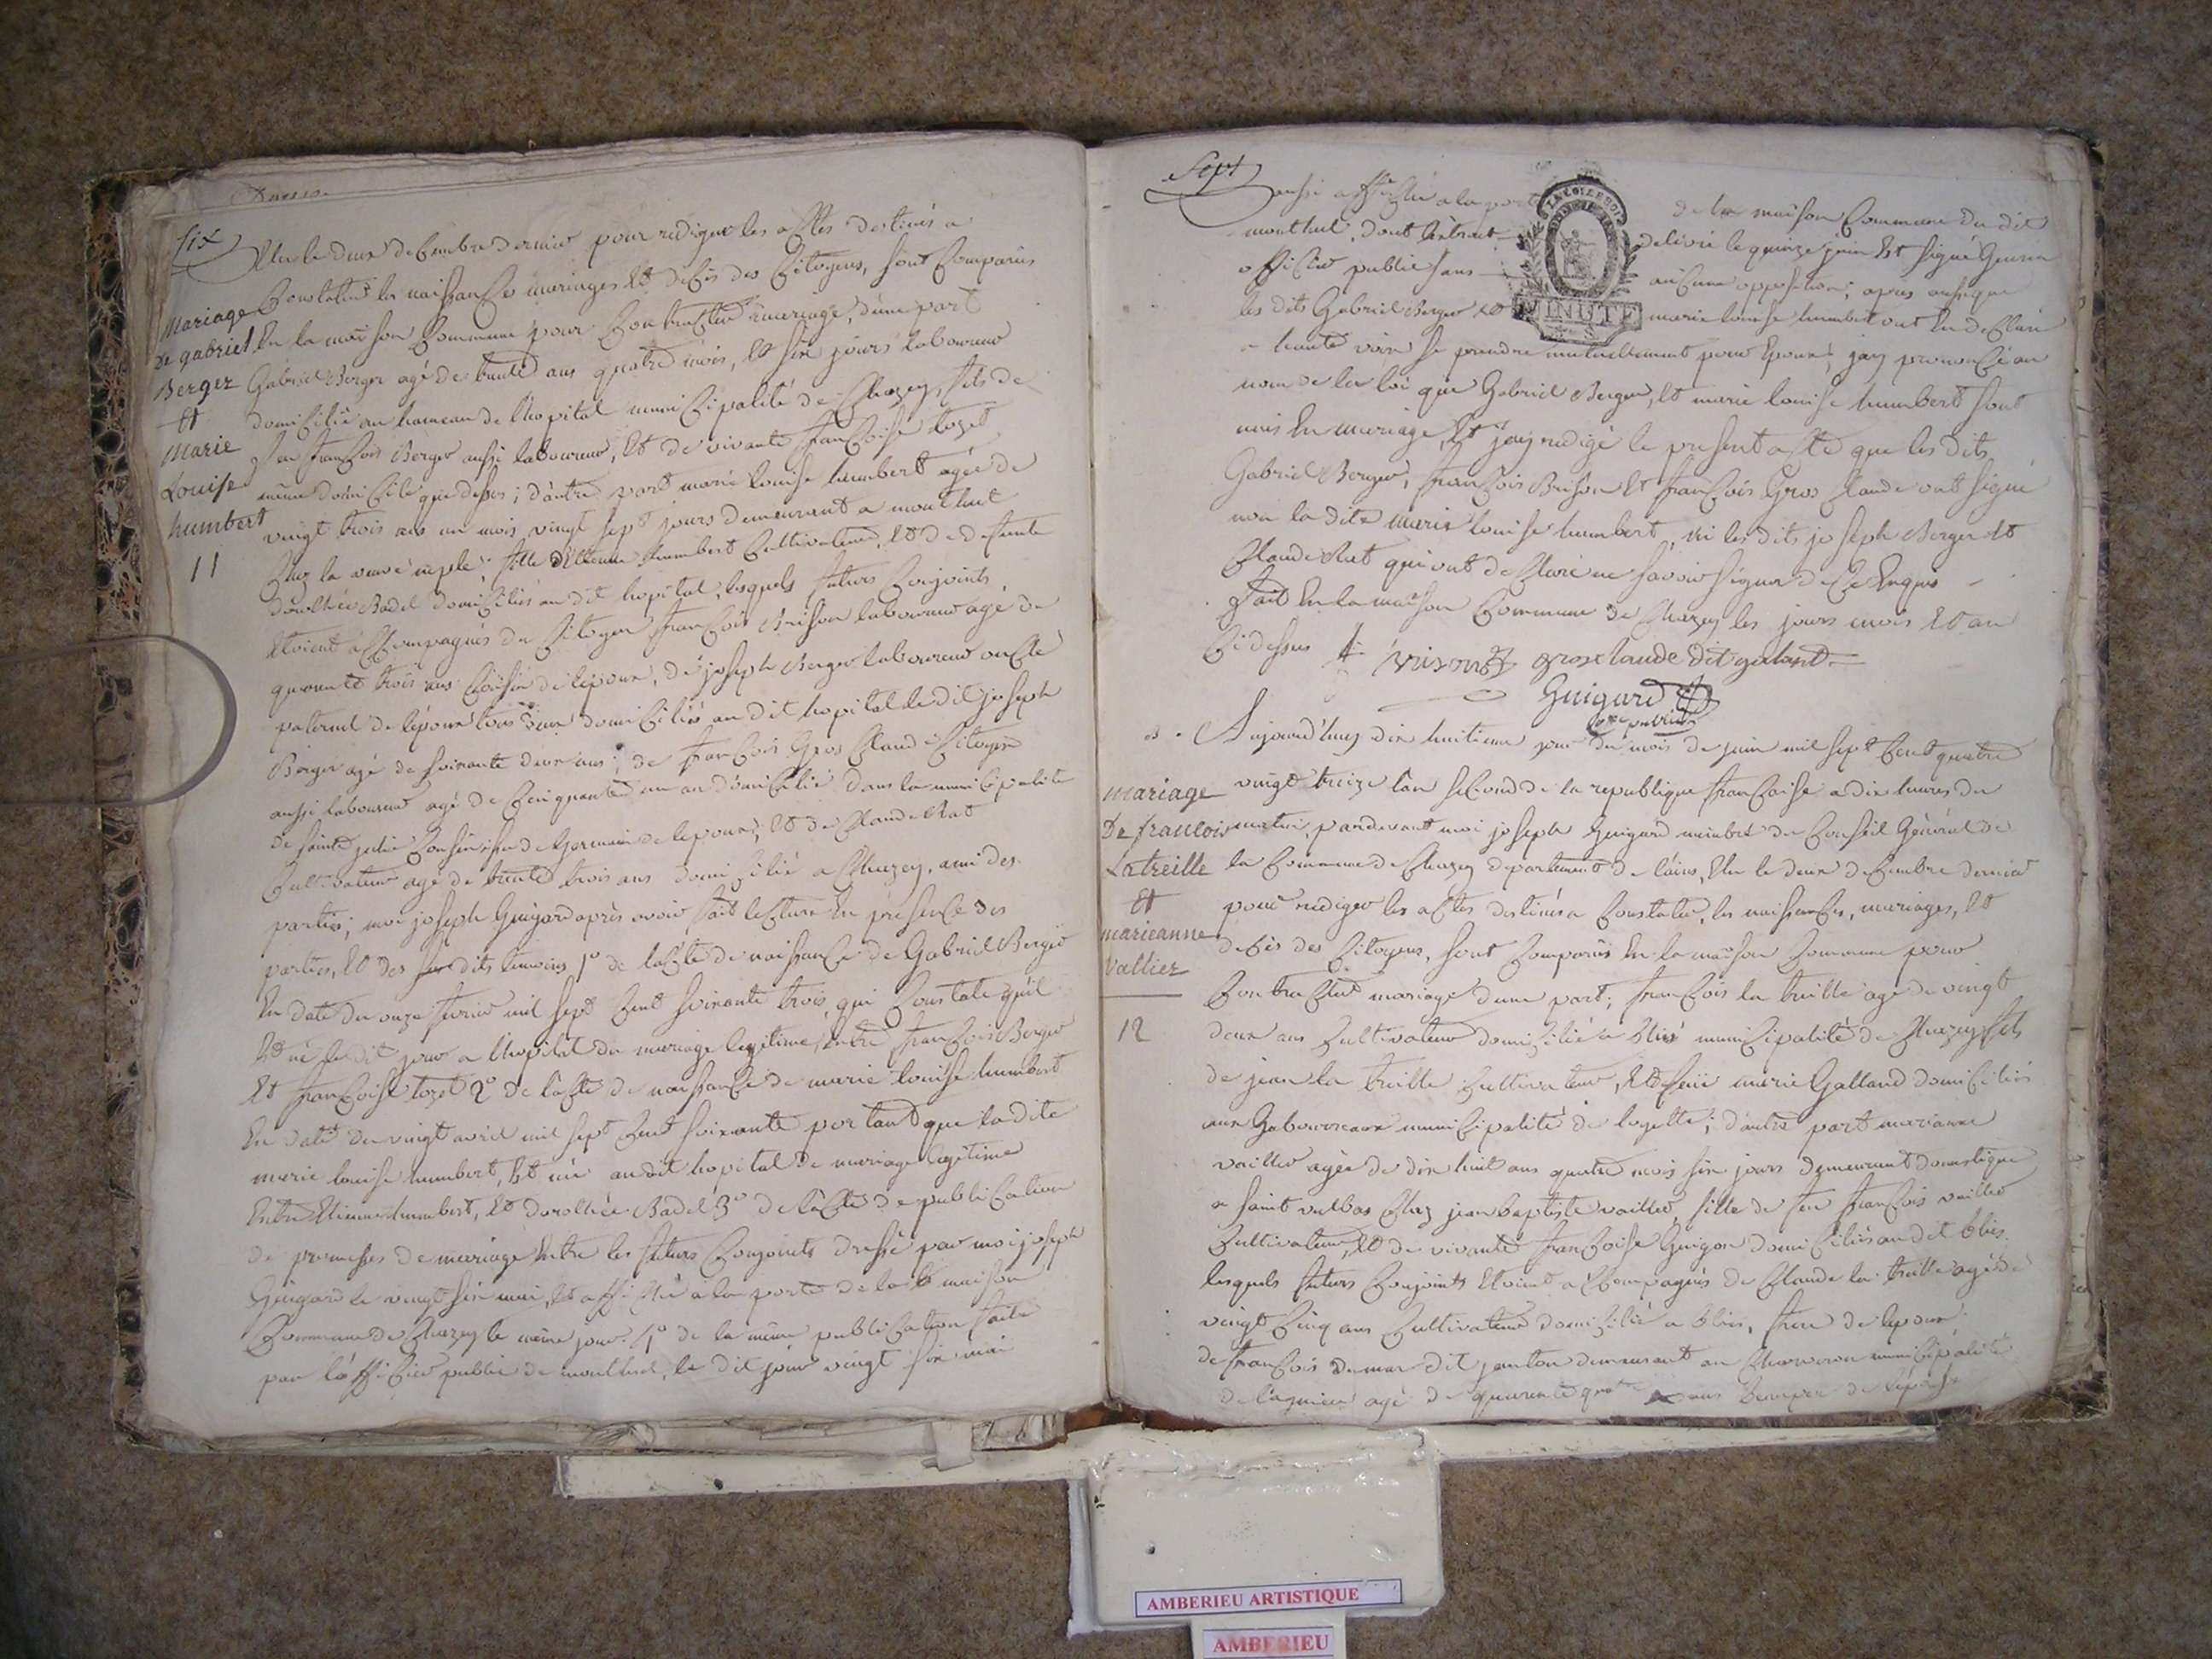 six
Elu le deux decembre dernier pour rediger les actes destinés a
Constater les naissances mariages Et decès des Citoyens, sont Comparus
En la maison Commune pour Contracter mariage, d'une part
Gabriel Berger agé de trente ans quatre mois, Et six jours laboureur
domicilié au hameau de l'hopital municipalité de Chazey, fils de
feu francois Berger aussi laboureur, Et de vivante francoise tozet
même domicile que dessus; d'autre part marie louise humbert agée de
vingt trois ans un mois, vingt sept jours demeurant a montluel
Chez la veuve fille d'Etienne humbert Cultivateur, Et de defunte
dorothée Badel domiciliés au dit hopital; lesquels futurs Conjoints,
Etoient accompagnés du Citoyen francois Brison laboureur agé de
quarante trois ans Cousin de l'epoux, de joseph Berger laboureur oncle
paternel de l'epoux tous deux domiciliés au dit hopital le dit joseph
Berger agé de soixante deux ans; de francois Gros Claude Citoyen
aussi laboureur agé de Cinquante un an domicilié dans la municipalité
de sainte julie Cousin issu de Germain de l'epoux; Et de Claude Rat
Cultivateur agé de trente trois ans domicilié a Chazey, ami des
parties; moi joseph Guigard après avoir fait lecture En presence des
parties, Et des dits temoins 1° de l'acte de naissance de Gabriel Berger
En date du onze fevrier mil sept Cent soixante trois, qui Constate qu'il
Est né le dit jour a l'hopital du mariage legitime entre francois Berger
Et francoise tozet 2° de l'acte de naissance de marie louise humbert
En date du vingt avril mil sept Cent soixante portant que la dite
marie louise humbert, Est née au dit hopital de mariage legitime
Entre Etienne humbert, Et dorothée Badel 3° de l'acte de publication
de promesses de mariage Entre les futurs Conjoints dressé par moi joseph
Guigard le vingt six mai, Et affiché a la porte de la maison
Commune de Chazey le même jour. 4° de la même publication faite
par l'officier public de montluel, le dit jour vingt six mai
Mariage
de gabriel
Berger
Et
Marie
Louise
humbert
11
Sept
aussi affiché a la porte de la maison Commune du dit
montluel, dont l'extrait delivré le quinze juin Est signé
officier public sans aucune opposition; apres aussi que
les dits Gabriel Berger Et marie louise humbert ont Eu declaré
a haute voix se prendre mutuellement pour Epoux; jay prononcé au
nom de la loi que Gabriel Berger, Et marie louise humbert sont
unis En mariage, Et j'ay redigé le present acte que les dits
Gabriel Berger, francois Brison Et francois Gros Claude ont signé
non la dite marie louise humbert, ni les dits joseph Berger Et
Claude Rat qui ont declaré ne savoir signer de Ce Enquis
fait En la maison Commune de Chazey les jours mois Et an
Ci dessus brison grosclaude dit galant
Guigard
off. public
MINUTE
Aujourd'huy dix huitieme jour du mois de juin mil sept Cent quatre
vingt treize l'an second de la republique francaise a dix heures du
matin, pardevant moi joseph Guigard membre du Conseil Général de
la Commune de Chazey departement de l'ain, Elu le deux decembre dernier
pour rediger les actes destinés a Constater, les naissances, mariages, Et
decès des Citoyens, sont Comparus En la maison Commune pour
Contracter mariage d'une part; francois la treille agé de vingt
deux ans Cultivateur domicilié a blies municipalité de Chazey fils
de jean la treille Cultivateur, Et de feüe marie Galland domiciliés
aux Gaboureaux municipalité de loyette; d'autre part marianne
vallier agée de dix huit ans quatre mois six jours demeurant domestique
a saint vulbas Chez jean baptiste vallier, fille de feu francois vallier
Cultivateur, Et de vivante francoise Guigon domiciliés au dit blies.
lesquels futurs Conjoints Etoient accompagnés de Claude la treille agé de
vingt Cinq ans Cultivateur domicilié a blies, frere de l'epoux
de francois dumas dit janton demeurant au municipalité
de lagnieu agé de quarante quatre ans de l'épouse
mariage
De francois
Latreille
Et
marieanne
Vallier
12
AMBERIEU ARTISTIQUE
AMBERIEU